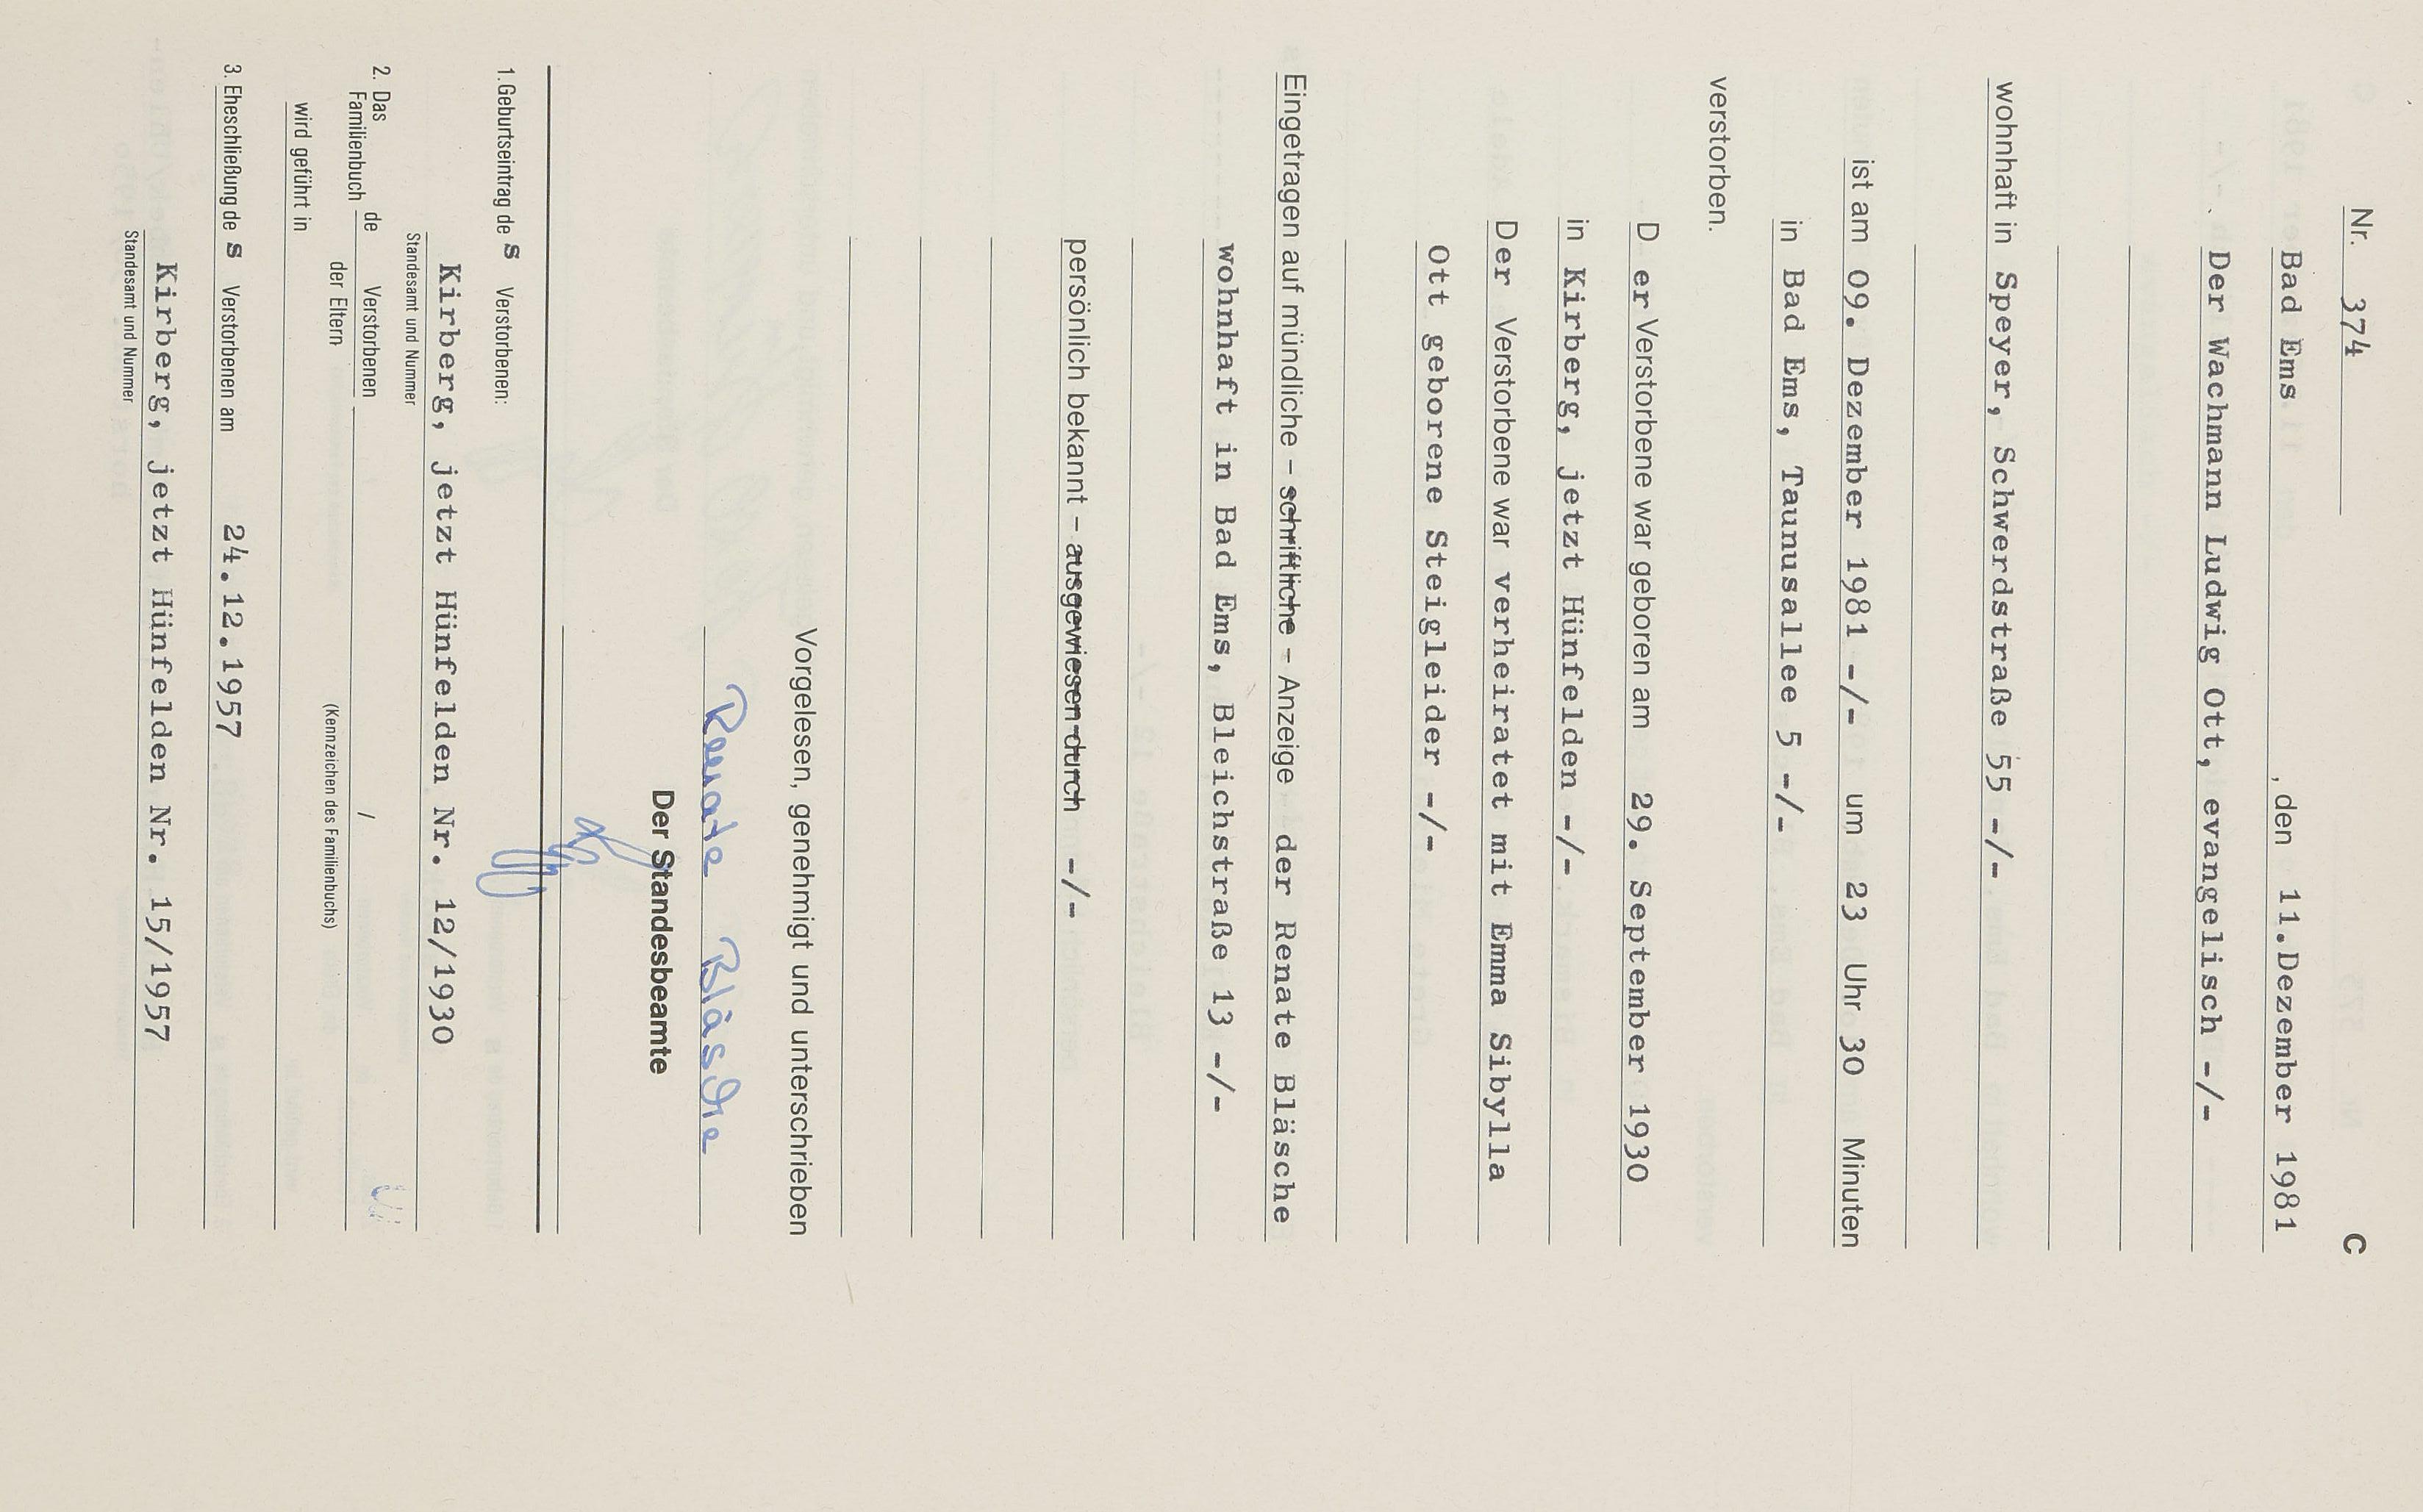 Nr. 374 C
Bad Ems, den 11.Dezember 1981
Der Wachmann Ludwig Ott, evangelisch -/-
wohnhaft in Speyer, Schwerdstraße 55 -/-
ist am 09. Dezember 1981 -/- um 23 Uhr 30 Minuten
in Bad Ems, Taunusallee 5 -/-
verstorben.
D er Verstorbene war geboren am 29. September 1930
in Kirberg, jetzt Hünfelden -/-
Der Verstorbene war verheiratet mit Emma Sibylla
Ott geborene Steigleider -/-
Eingetragen auf mündliche – schriftliche – Anzeige der Renate Bläsche
wohnhaft in Bad Ems, Bleichstraße 13 -/-
persönlich bekannt – ausgewiesen durch -/-
Vorgelesen, genehmigt und unterschrieben
Renate Bläsche
Der Standesbeamte
1.Geburtseintrag de s Verstorbenen:
Kirberg, jetzt Hünfelden Nr. 12/1930
Standesamt und Nummer
2. Das Familienbuch de Verstorbenen /
der Eltern
(Kennzeichen des Familienbuchs)
wird geführt in
3. Eheschließung de s Verstorbenen am 24.12.1957
Kirberg, jetzt Hünfelden Nr. 15/1957
Standesamt und Nummer